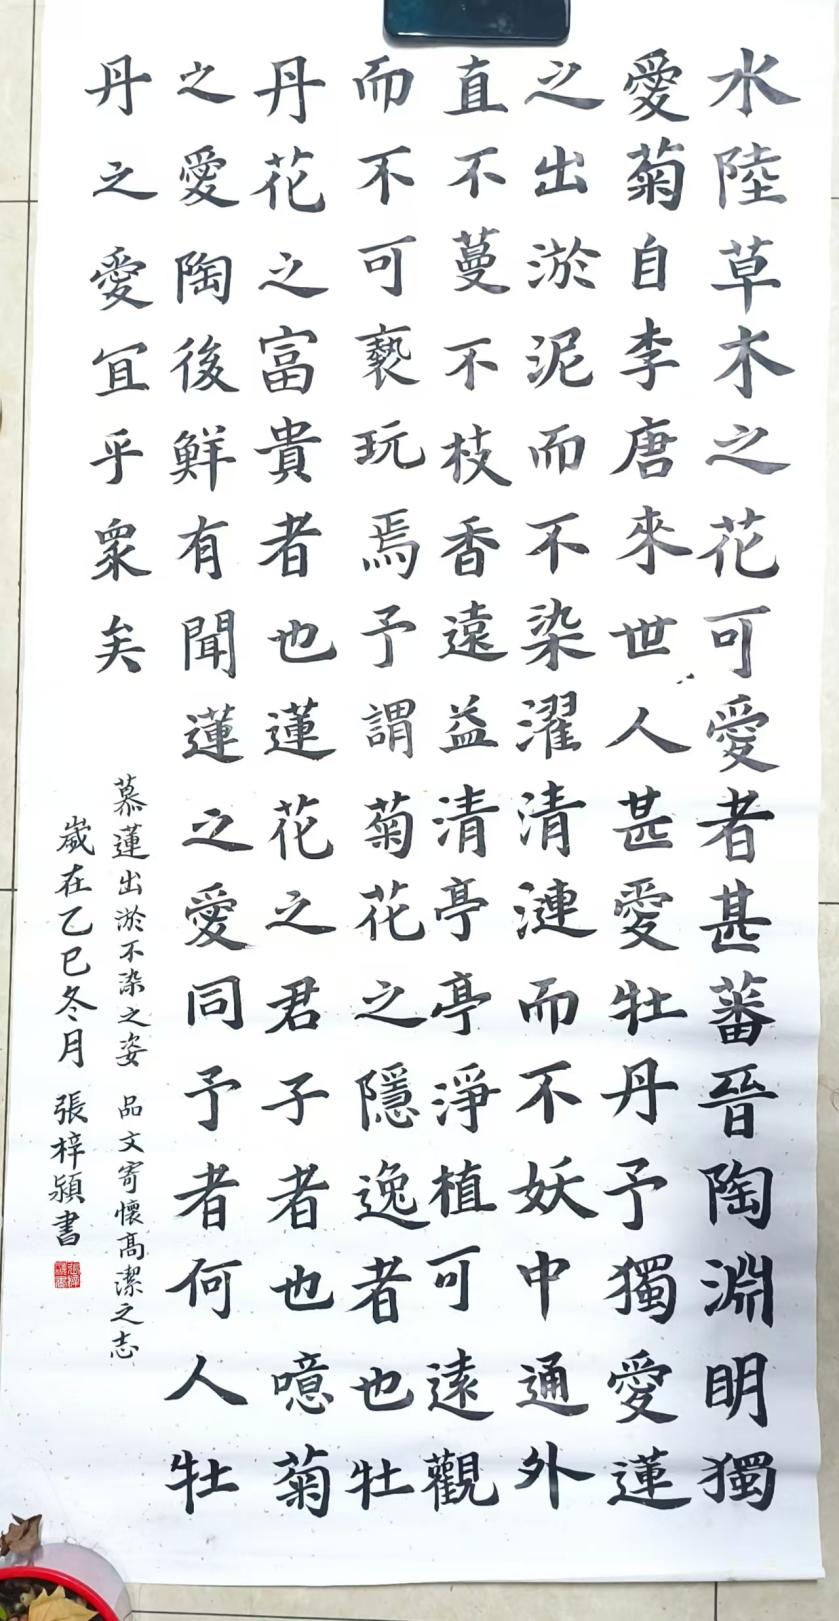 水陸草木之花可愛者甚蕃晉陶淵明獨
愛菊自李唐來世人甚愛牡丹予獨愛蓮
之出淤泥而不染濯清漣而不妖中通外
直不蔓不枝香遠益清亭亭淨植可遠觀
而不可褻玩焉予謂菊花之隱逸者也牡
丹花之富貴者也蓮花之君子者也噫菊
之愛陶後鮮有聞蓮之愛同予者何人牡
丹之愛宜乎眾矣
慕蓮出淤不染之姿 品文寄懷高潔之志
歲在乙巳冬月 張梓潁書